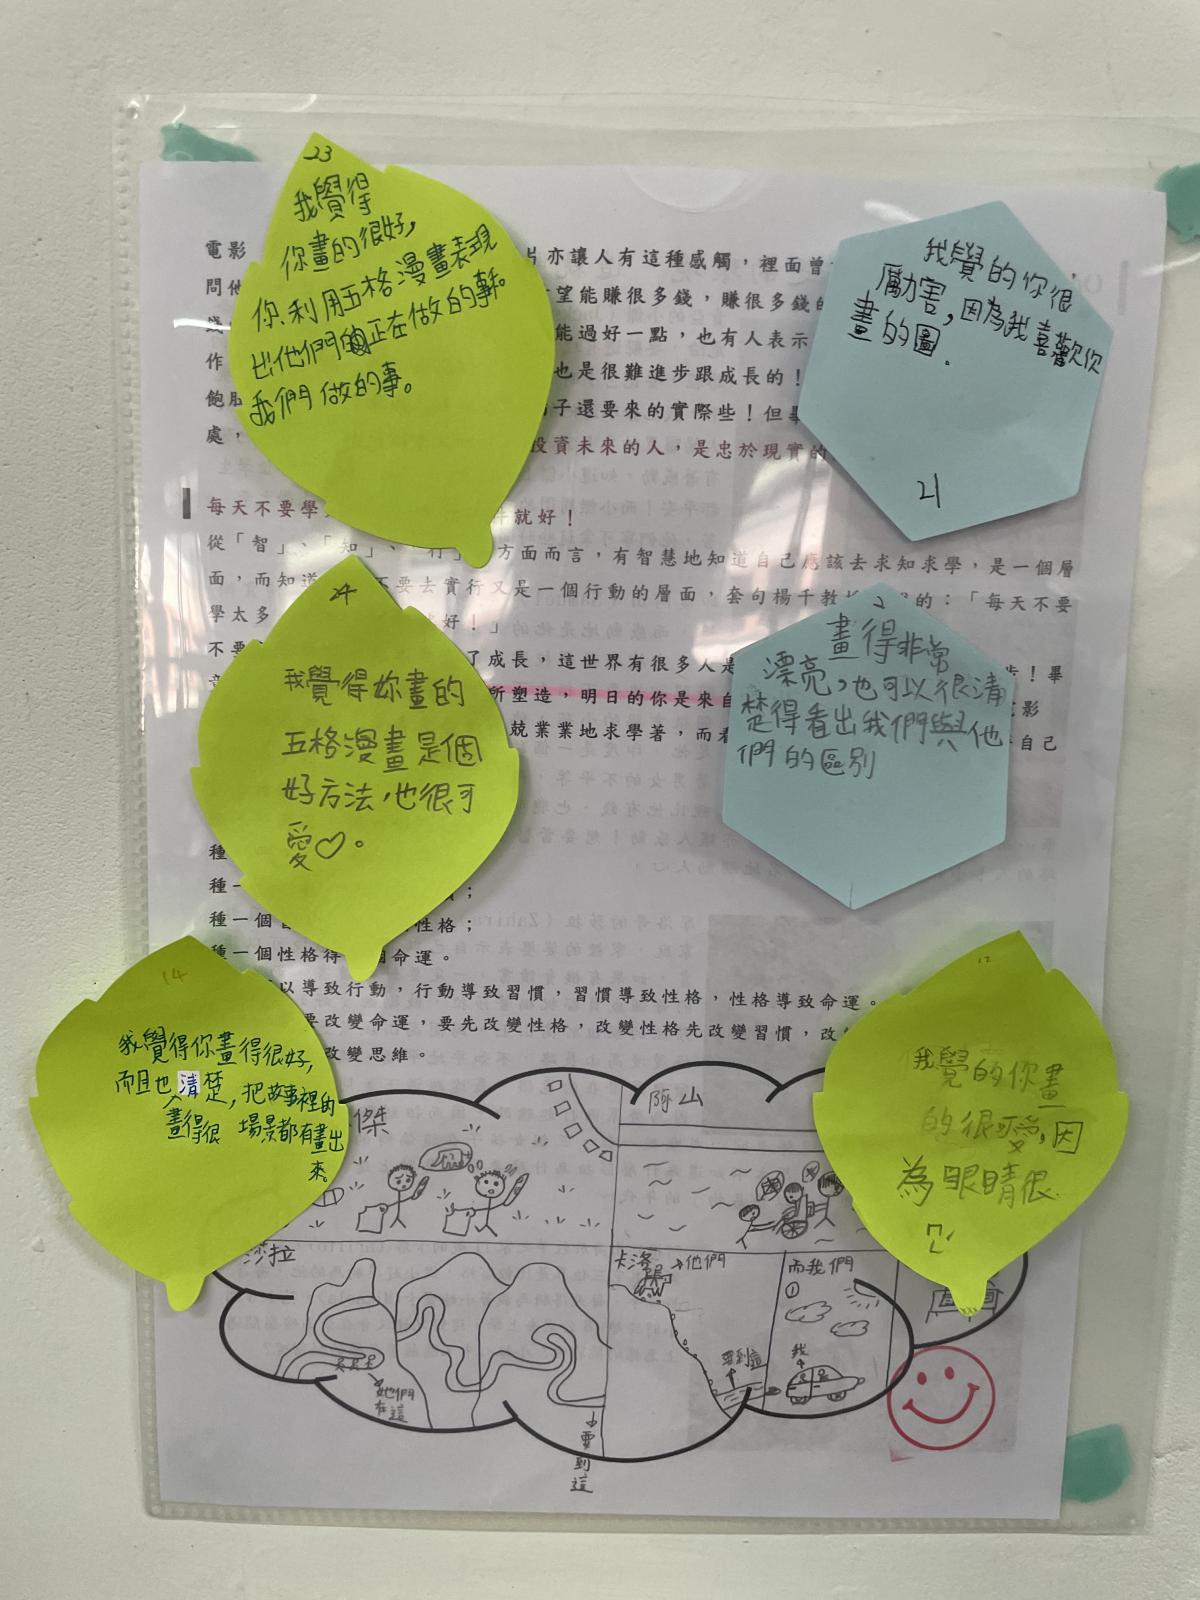 23
我覺得
你畫的很好,
你利用五格漫畫表現
出他們正在做的事。
我們做的事。
我覺的你很
厲害,因為我喜歡你
畫的圖.
21
電影
片亦讓人有這種感觸,裡面曾
問他
望能賺很多錢,賺很多錢的
錢
能過好一點,也有人表示
作
也是很難進步跟成長的!
飽
子還要來的實際些!但畢
處,
投資未來的人,是忠於現實的
每天不要學
就好!
從「智」、「知」、「行」
方面而言,有智慧地知道自己應該去求知求學,是一個層
面,而知道
不要去實行又是一個行動的層面,套句楊千教
的:「每天不要
學太多
好!」
不要
了成長,這世界有很多人是
步!畢
所塑造,明日的你是來自
影
兢業業地求學著,而看
自己
24
我覺得妳畫的
五格漫畫是個
好方法,也很可
愛♡。
2
畫得非常
漂亮,也可以很清
楚得看出我們與他
們的區別
種
種一
;
種一個
性格;
種一個性格得
個命運。
以導致行動,行動導致習慣,習慣導致性格,性格導致命運。
要改變命運,要先改變性格,改變性格先改變習慣,改
改變思維。
14
我覺得你畫得很好,
而且也畫得很清楚,把故事裡的
場景都有畫出
來。
12
我覺的你畫
的很可愛,因
為眼睛很
傑
阿山
莎拉
卡洛
他們
而我們
①
要到這
我
她們
在這
要到這